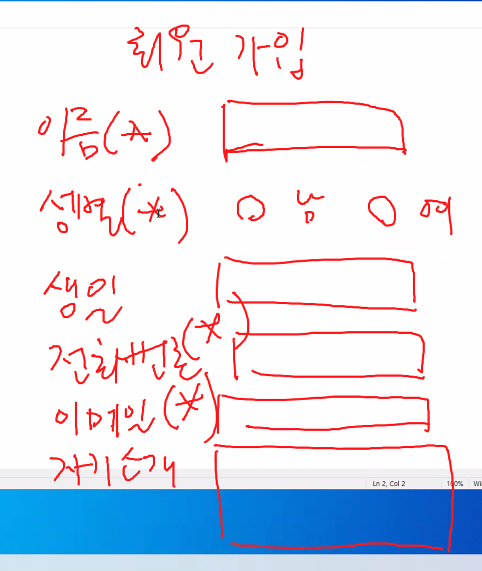 회원 가입
이름(*)
성별(*) ○ 남 ○ 여
생일
전화번호(*)
이메일(*)
자기소개
Ln 2, Col 2 100% Wi